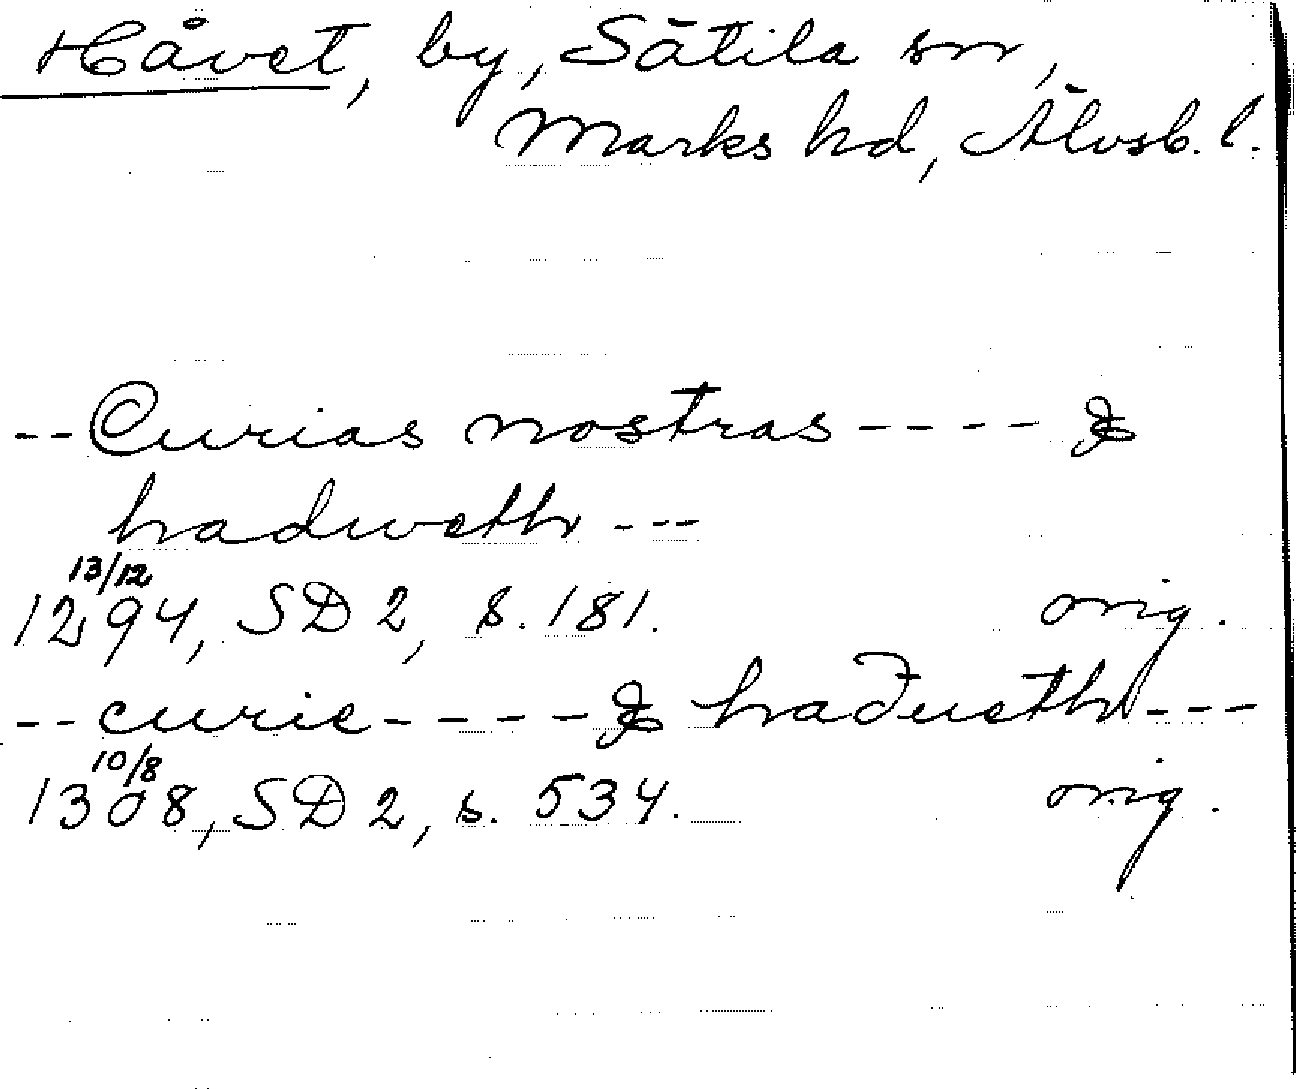 Håvet, by, Sätila sn,
Marks hd, Älvsb. l.
--Curias nostras---- &
hadweth ---
13/12
1294, SD 2, s. 181. orig.
--curie---- & hađueth---
10/8
1308, SD 2, s. 534. orig.